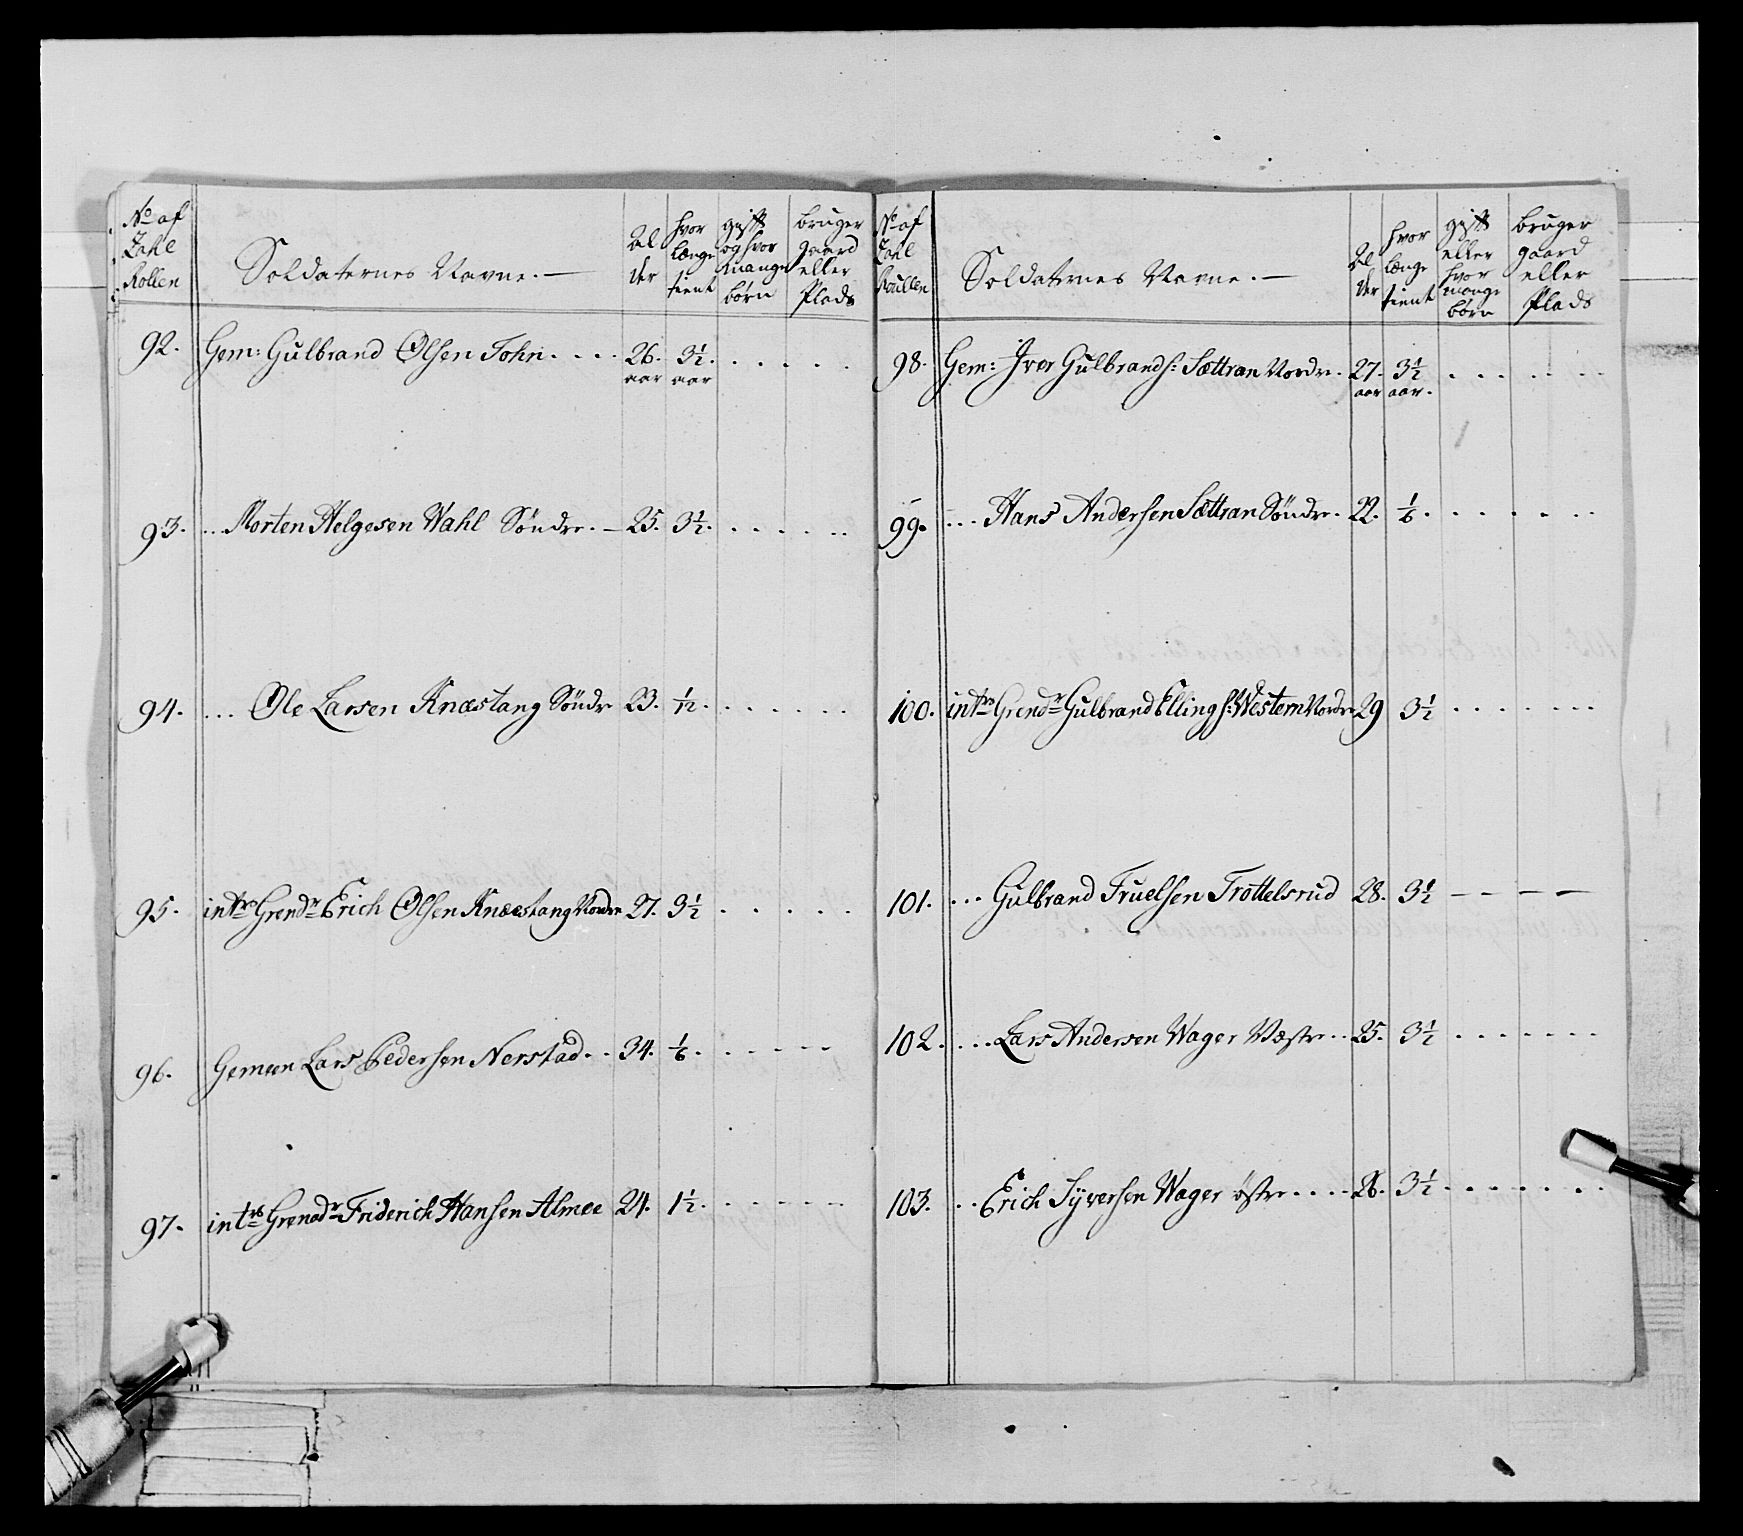 No af
Zahl
Rollen
Soldaternes Navne. —
Al
der
hvor
længe
tient
gifft
og hvor
mange
børn
bruger
gaard
eller
Plads
92. Gem: Gulbrand Olsen Tohn . . . . 26. aar 3½. aar . . . . .
93. ... Morten Helgesen Wahl Søndre. — 25. 3½. . . . . . .
94. ... Ole Larsen Knæstang Søndr 23. ½. . . . . . .
95. intrs Grendr Erich Olsen Knæstang Nordre 27. 3½ . . . . .
96. Gemeen Lars Pedersen Nerstad . . 34. ⅙. . . . . .
97. intrs Grenadr Friderich Hansen Almee 24. 1½. . . . . .
No af
Zahl
Roullen
Soldaternes Navne. —
Al
der
hvor
længe
tient
gifft
eller
hvor
mange
børn
bruger
gaard
eller
Plads
98. Gem: Iver Gulbrands: Sættran Nordre. 27. aar 3½ aar. . . . . . .
99. ... Hans Andersen Sættran Søndre. 22. ⅙. . . . . . .
100. intrs Grendr Gulbrand Ellings: Western Nordre 29 3½ . . . . . . .
101. ... Gulbrand Fruelsen Trottelsrud 28. 3½ — — — —
102. .... Lars Andersen Wager Væstre . . 25. 3½ . . . . . . .
103. .. Erich Syversen Wager østre . . . . 26. 3½ . . . . . . .